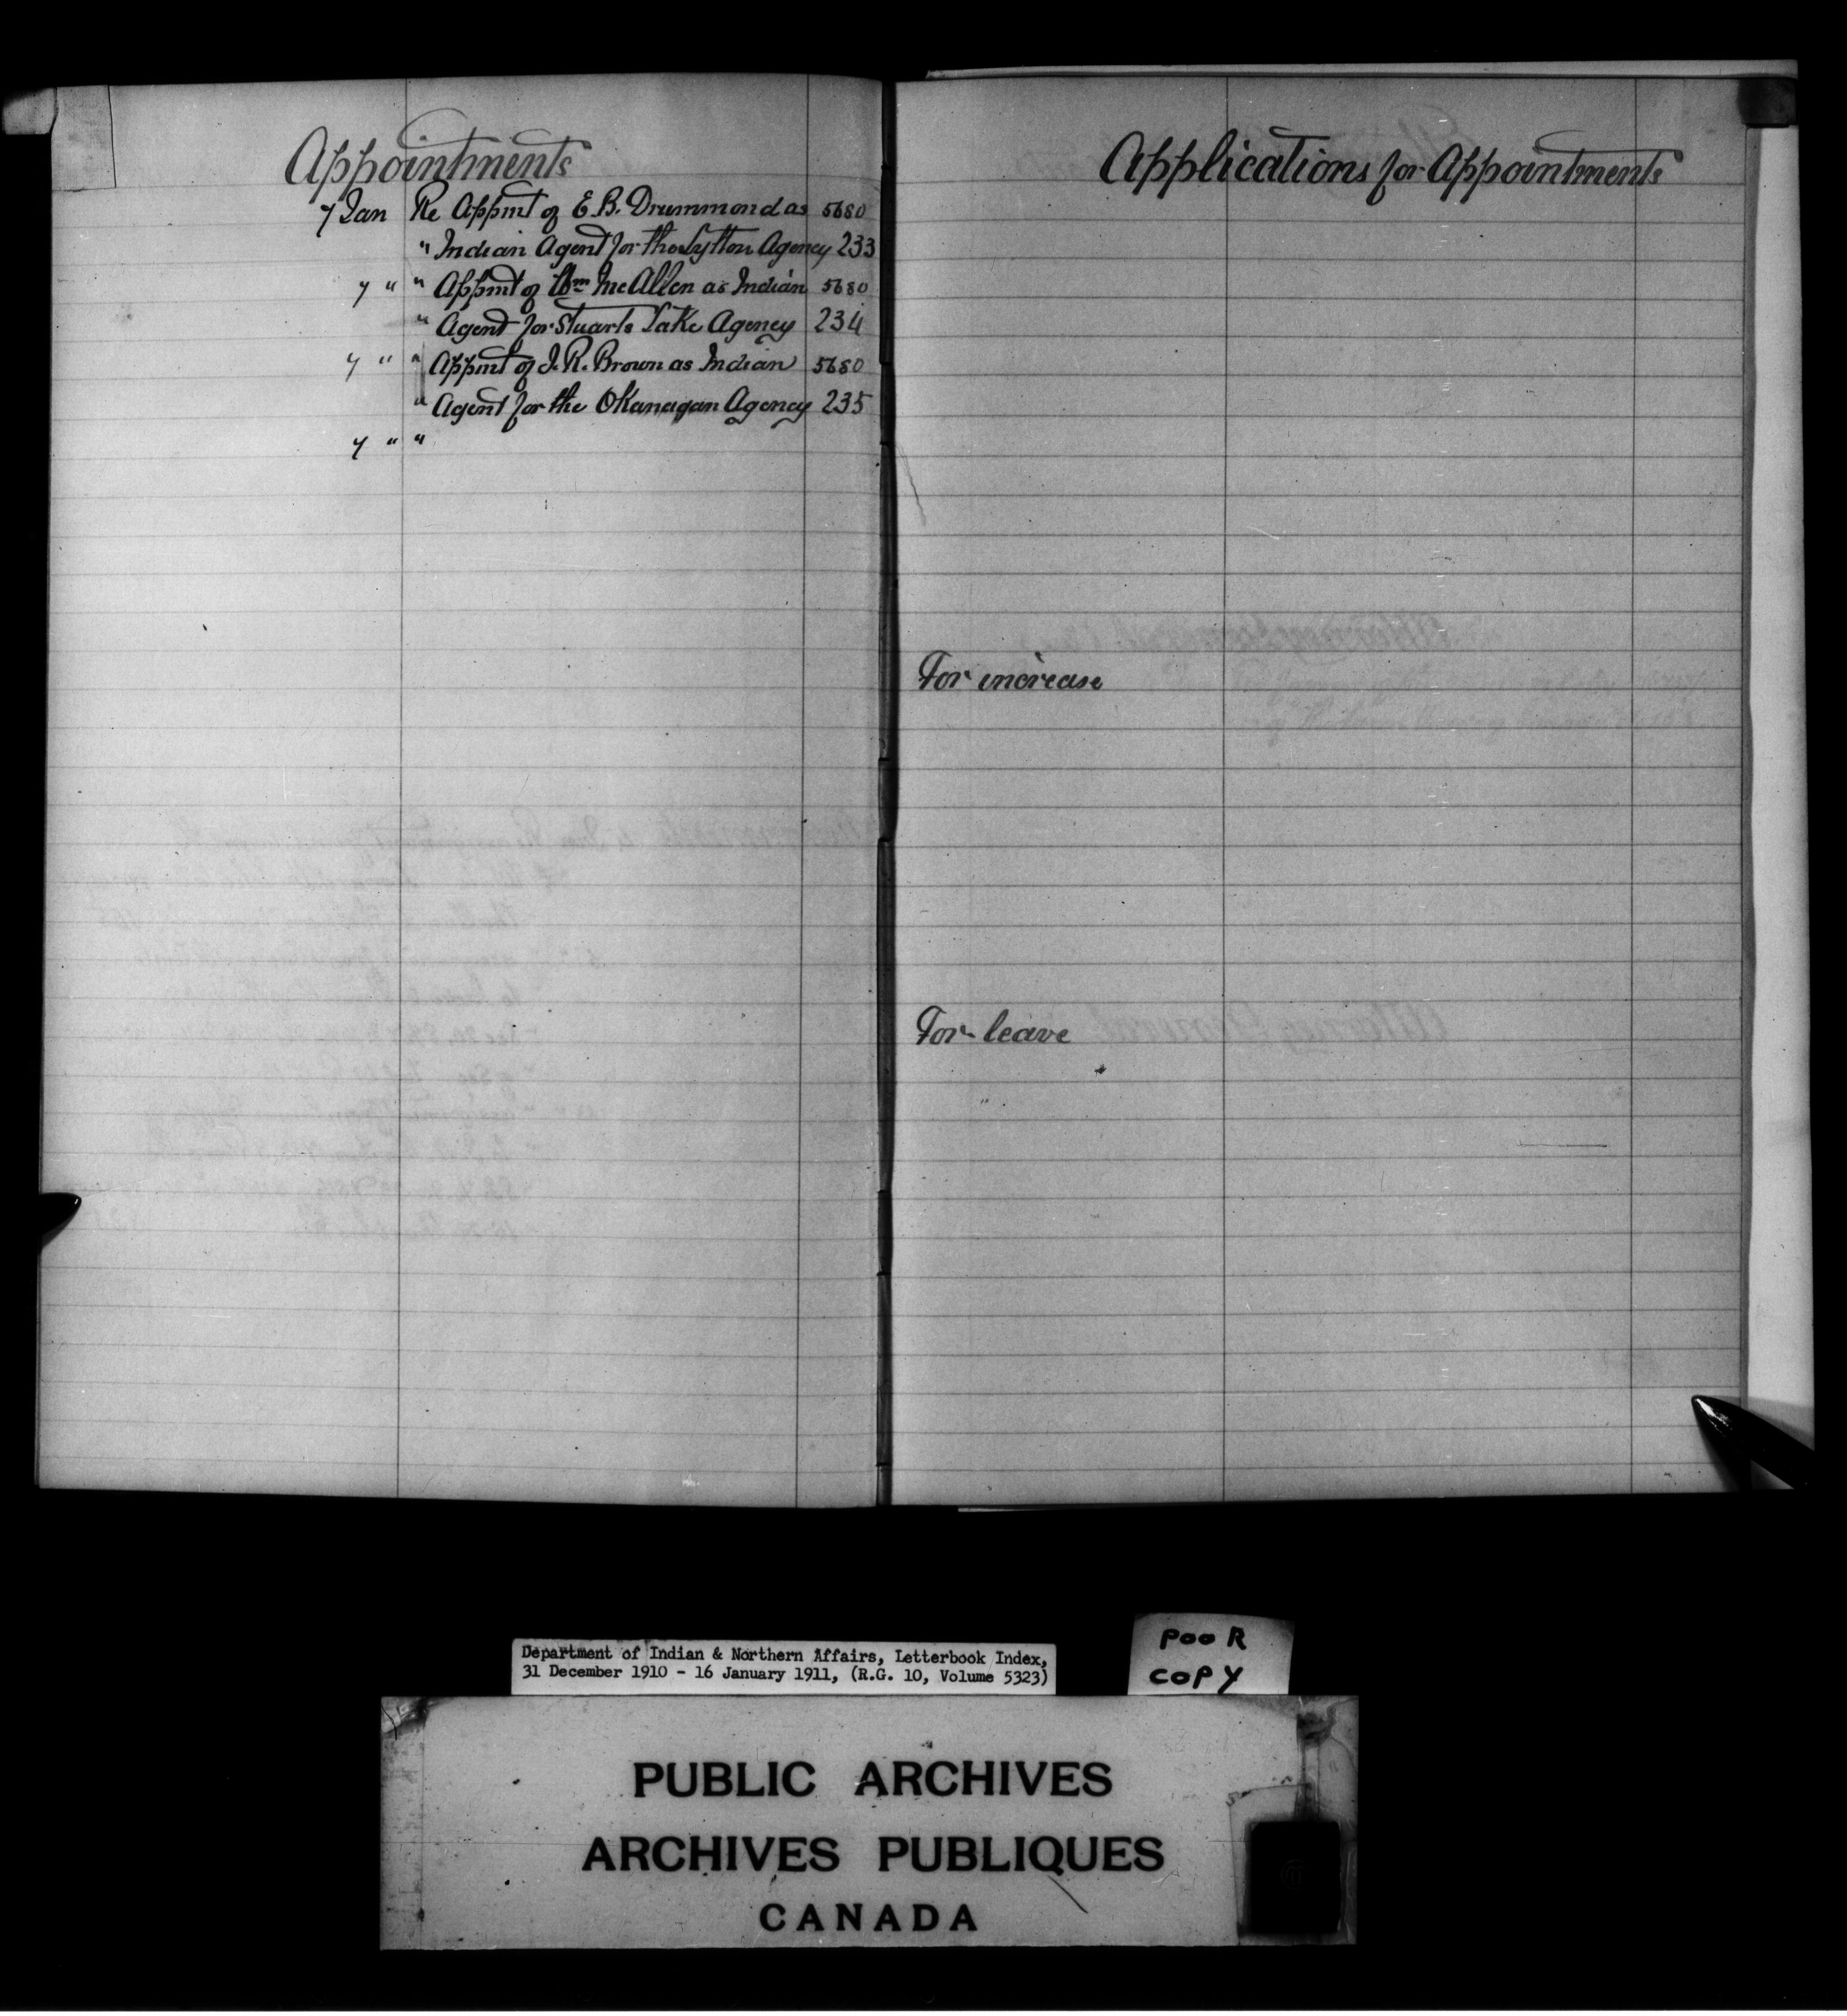 Appointments
7 Jan Re Appmt of E. B. Drummond as 5680
" Indian Agent for the Lytton Agency 233
7 " " Appmt of Wm McAllen as Indian 5680
" Agent for Stuarts Lake Agency 234
7 " " Appmt of J. R. Brown as Indian 5680
" Agent for the Okanagan Agency 235
7 " "
Applications for Appointments
For increase
For leave
Department of Indian & Northern Affairs, Letterbook Index,
31 December 1910 - 16 January 1911, (R.G. 10, Volume 5323)
POOR
COPY
PUBLIC ARCHIVES
ARCHIVES PUBLIQUES
CANADA